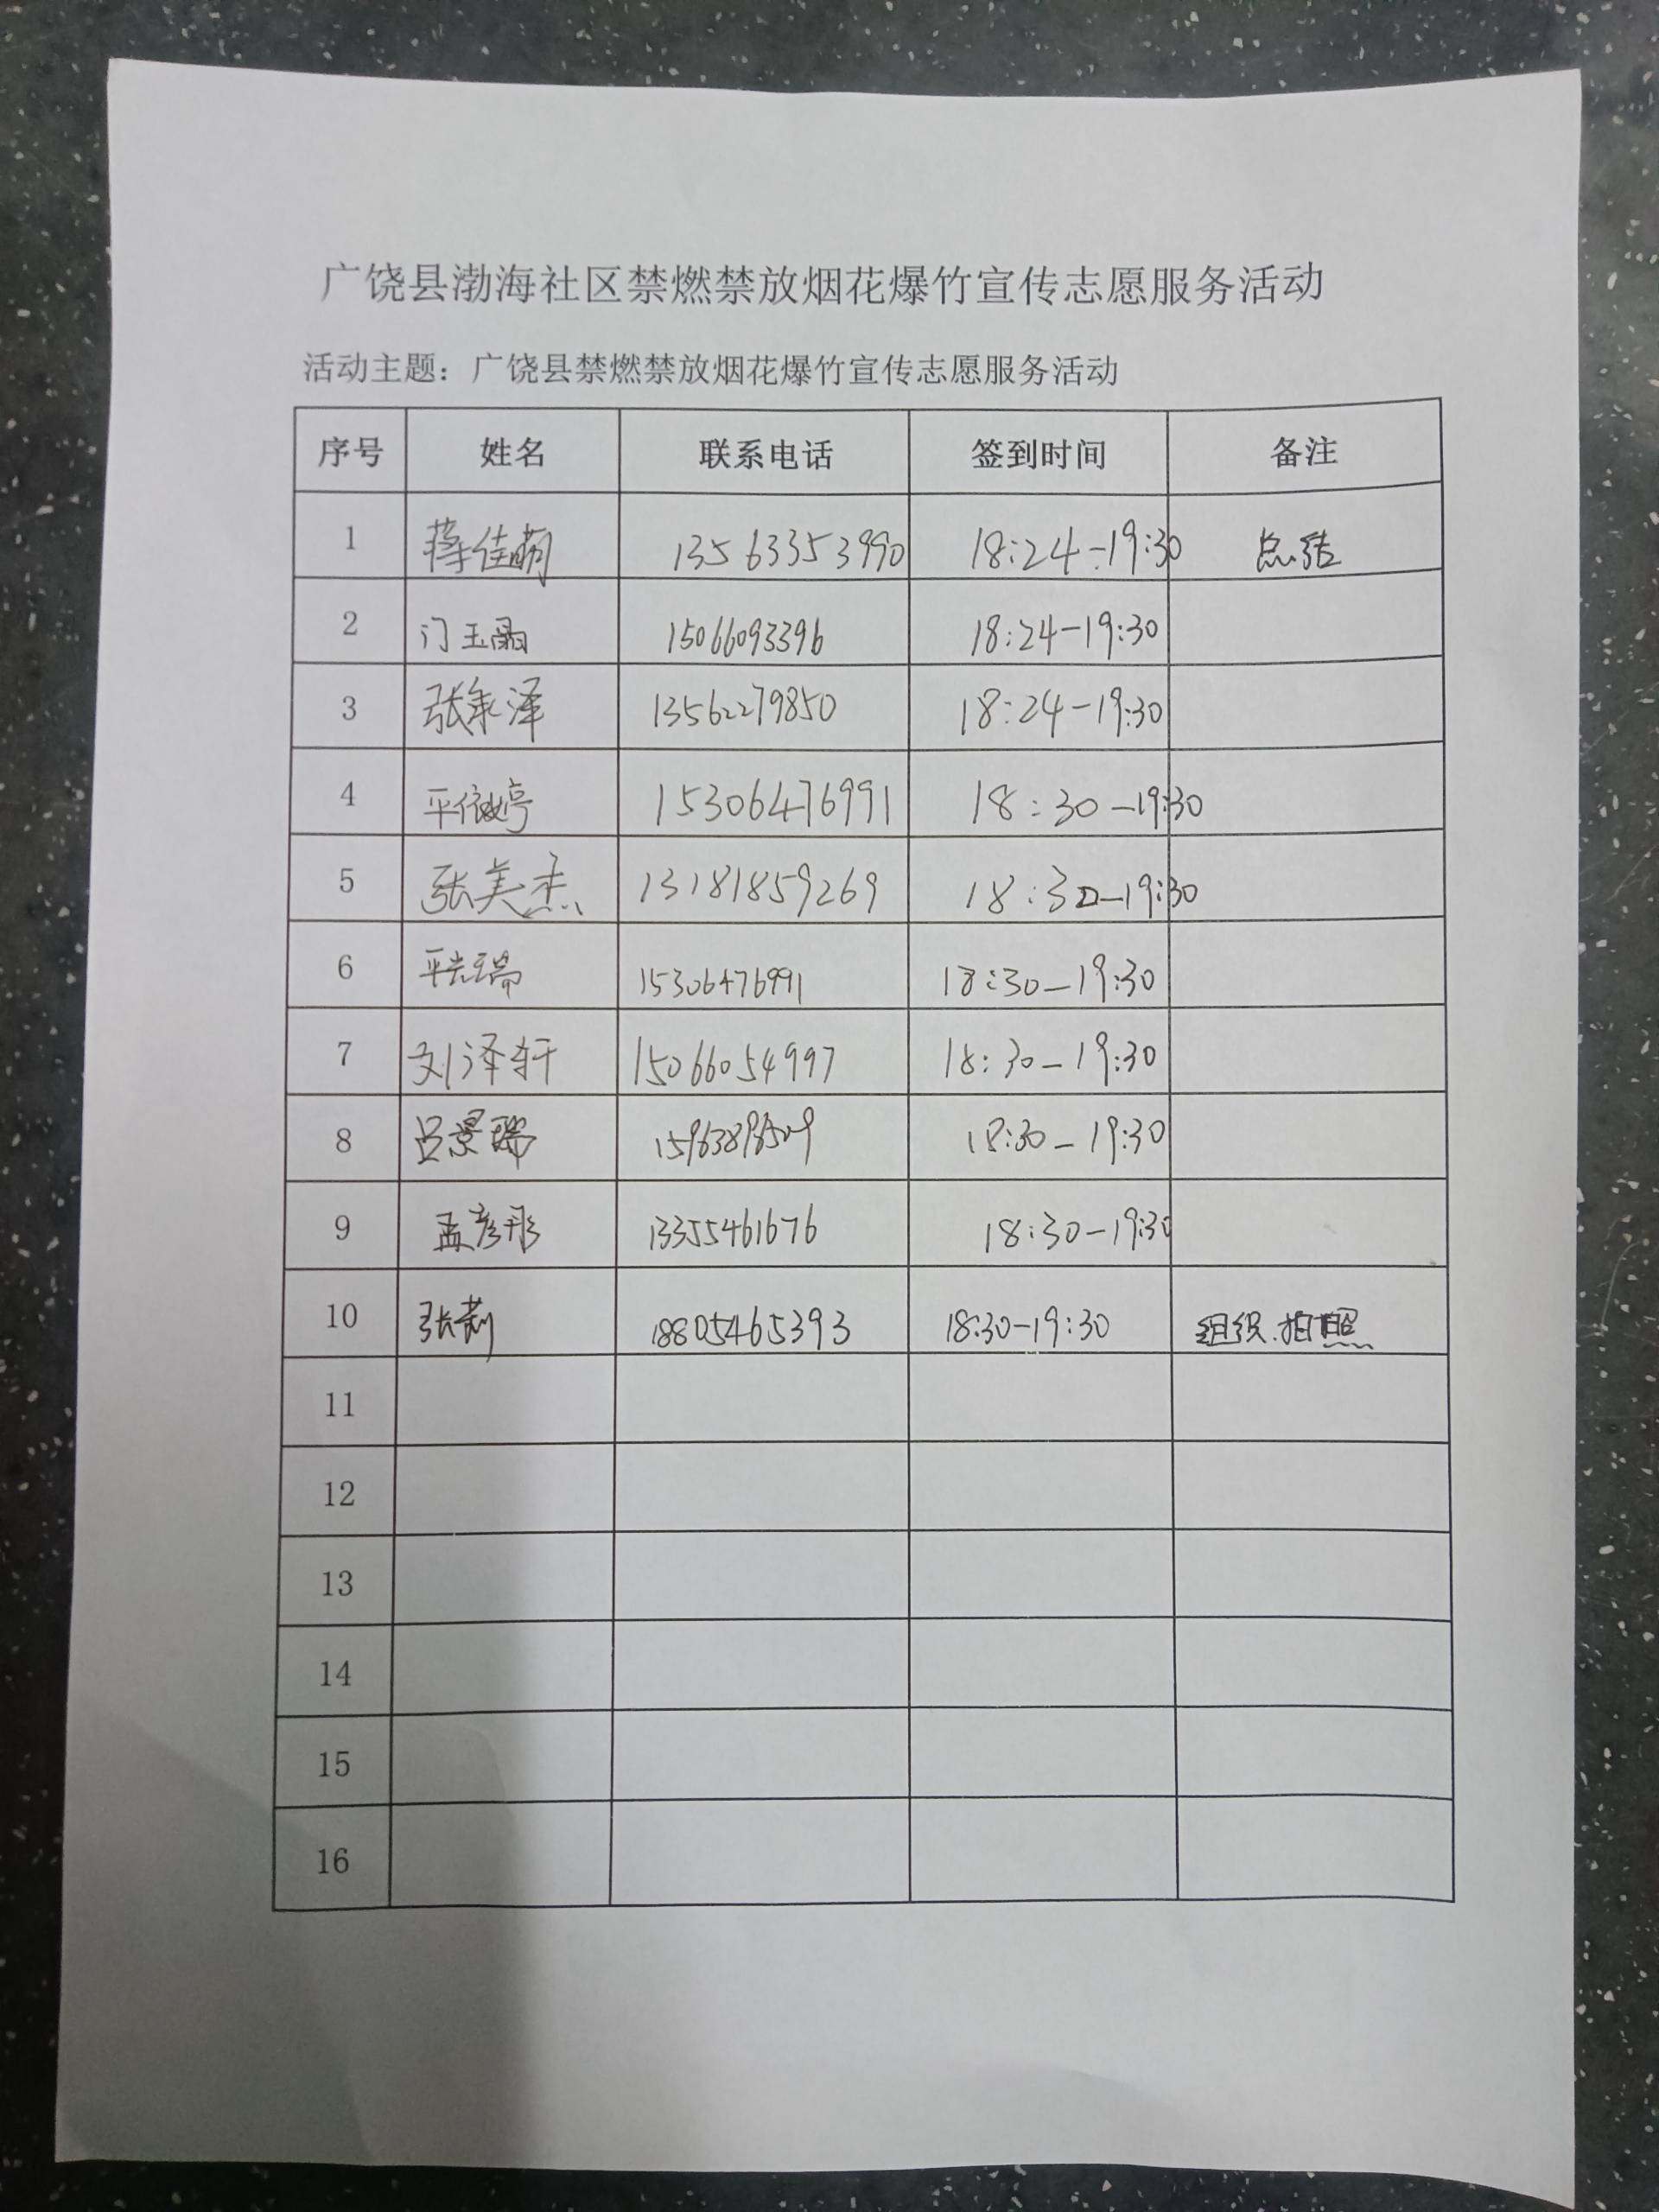 广饶县渤海社区禁燃禁放烟花爆竹宣传志愿服务活动
活动主题：广饶县禁燃禁放烟花爆竹宣传志愿服务活动
序号 姓名 联系电话 签到时间 备注
1 蒋佳萌 13563353990 18:24-19:30 总结
2 门玉晶 15066093396 18:24-19:30
3 张承泽 13562279850 18:24-19:30
4 15306476991 18:30-19:30
5 张美杰 13181859269 18:30-19:30
6 15306476991 18:30-19:30
7 刘泽轩 15066054997 18:30-19:30
8 吕景瑞 18:30-19:30
9 孟彦彤 13355461676 18:30-19:30
10 张莉 18805465393 18:30-19:30 组织.拍照
11
12
13
14
15
16